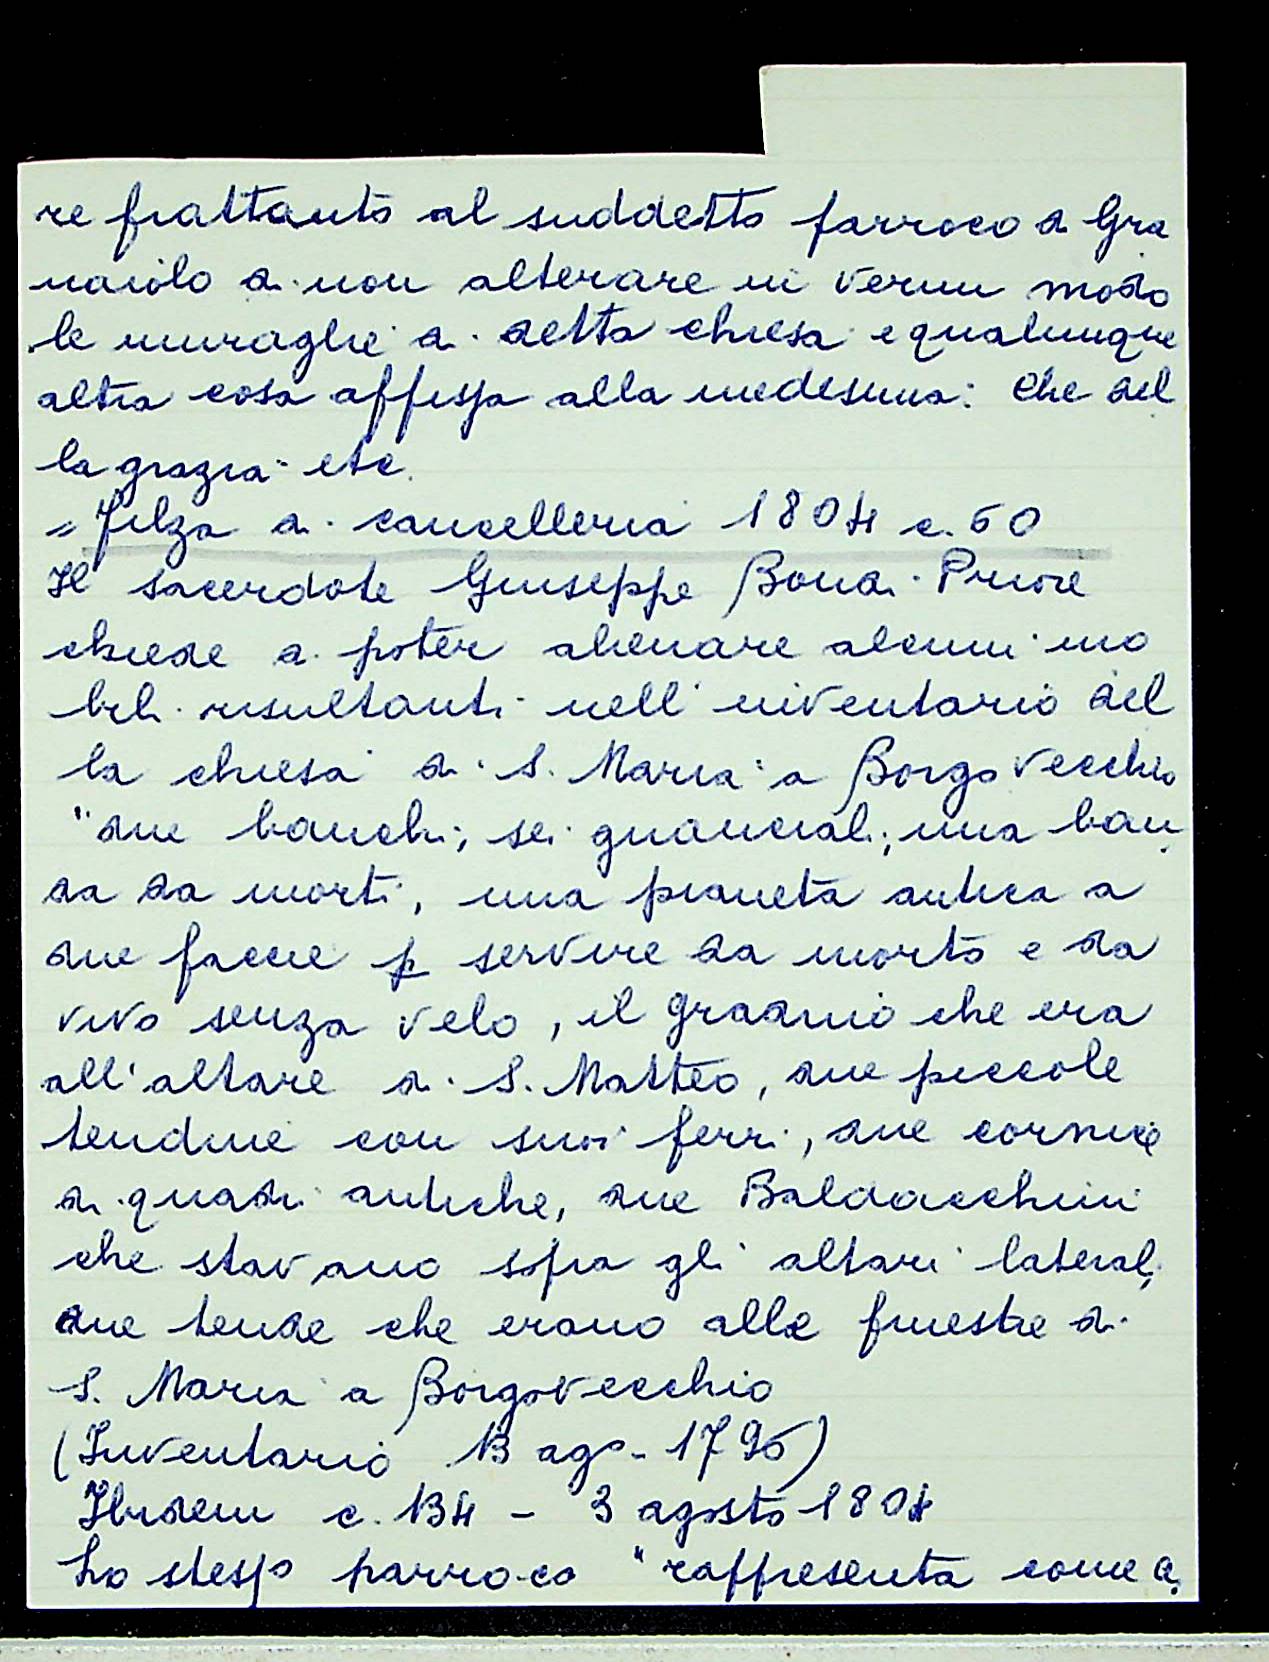 re frattanto al suddetto parroco di Gra
naiolo di non alterare in verun modo
le muraglie di detta chiesa e qualunque
altra cosa affissa alla medesima: Che del
la grazia etc.
= Filza di cancelleria 1804 c. 60
Il sacerdote Giuseppe Bondi Priore
chiede di poter alienare alcuni mo
bili risultanti nell'inventario del
la chiesa di S. Maria a Borgo vecchio
"due banchi; sei guanciali; una ban
da da morti, una pianeta antica a
due faccie p servire da morto e da
vivo senza velo, il gradino che era
all'altare di S. Matteo, due piccole
tendine con suoi ferri, due cornici
di quadri antiche, due Baldacchini
che stavano sopra gli altari laterali,
due tende che erano alle finestre di
S. Maria a Borgovecchio
(Inventario 13 ago- 1795)
Ibidem c. 134 - 3 agosto 1804
Lo stesso parroco "rappresenta come a,